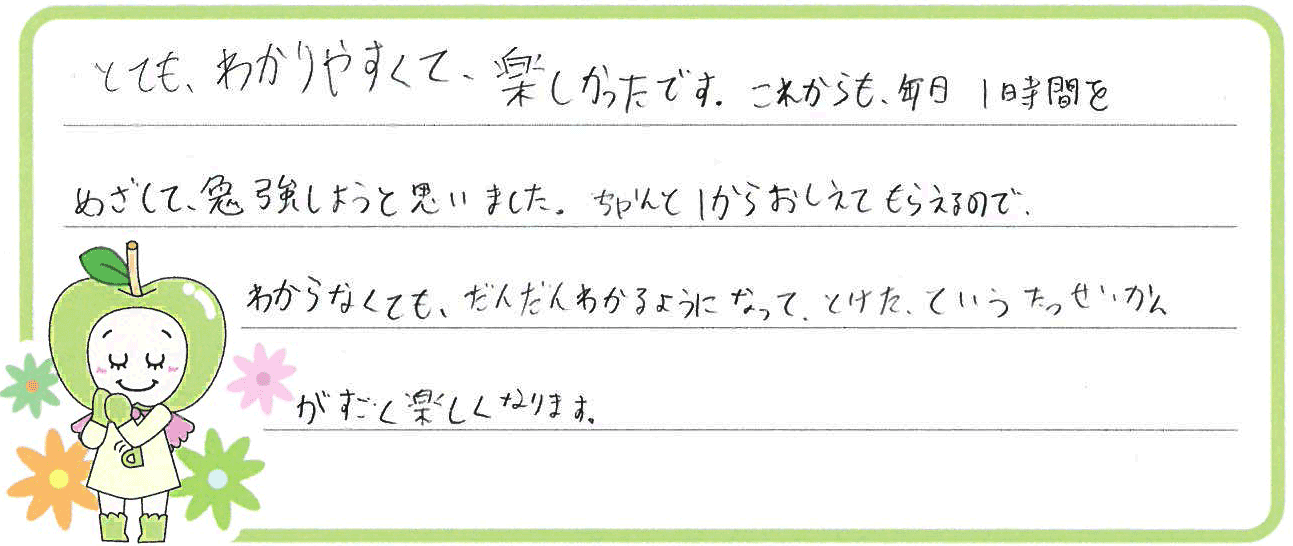 とても、わかりやすくて、楽しかったです。これからも、毎日1時間を
めざして、勉強しようと思いました。ちゃんと1からおしえてもらえるので、
わからなくても、だんだんわかるようになって、とけた、ていうたっせいかん
がすごく楽しくなります。